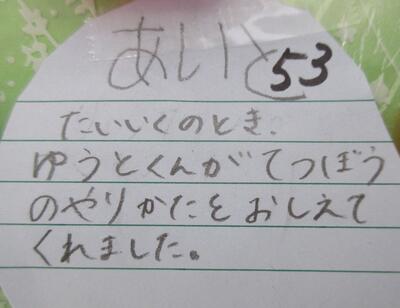 あいと
53
たいいくのとき、
ゆうとくんがてつぼう
のやりかたをおしえて
くれました。